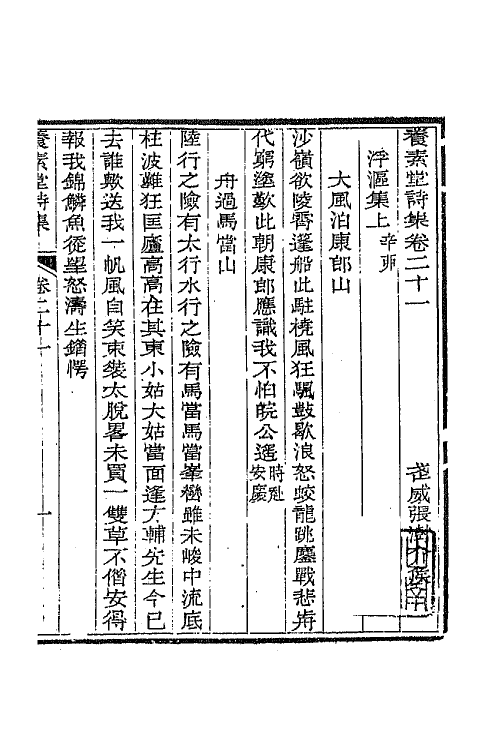 養素堂詩集卷二十一
武威張澍介侯
浮漚集上辛卯
大風泊康郎山
沙嶺欲陵霄蓬船此駐橈風狂颿鼓歇浪怒蛟龍跳鏖戰悲
代窮塗歎此朝康郎應識我不怕皖公遥時赴安慶
舟過馬當山
陸行之險有太行水行之險有馬當馬當峯巒雖未峻中流底
柱波難狂匡廬高高在其東小姑大姑當面逢方輔先生今已
去誰歟送我一帆風自笑束裝太脫畧未買一雙草不借安得
報我錦鱗魚從望怒濤生錯愕
養素堂詩集
卷二十一
一